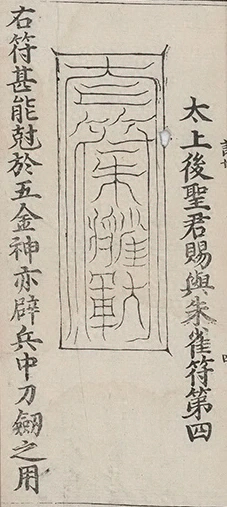 太上後聖君賜與朱雀符第四
右符甚能尅於五金神亦辟兵中刀劔之用